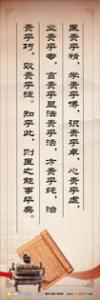 医贵乎精，学贵乎博，识贵乎卓，心贵乎虚，
业贵乎专，言贵乎显，法贵乎活，方贵乎纯，治
贵乎巧，效贵乎捷。知乎此，则医之能事毕矣。